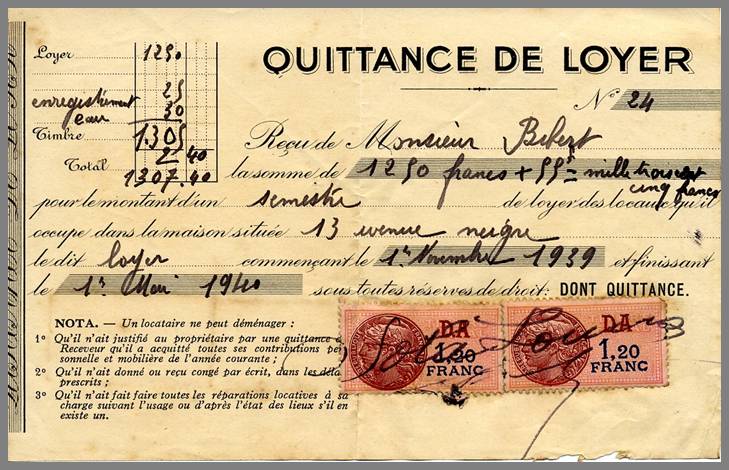 QUITTANCE DE LOYER
Nº 24
Loyer 1250
enregistrement 25
eau 30
Timbre 1305
2 40
Total 1307.40
Reçu de Monsieur Bibert
la somme de 1250 francs + 55 = mille trois cent
cinq francs
pour le montant d'un semestre de loyer des locaux qu'il
occupe dans la maison située 13 avenue
le dit loyer commençant le 1er Novembre 1939 et finissant
le 1er Mai 1940 sous toutes réserves de droit: DONT QUITTANCE.
NOTA. — Un locataire ne peut déménager :
1º Qu'il n'ait justifié au propriétaire par une quittance
Receveur qu'il a acquitté toutes ses contributions per
sonnelle et mobilière de l'année courante ;
2º Qu'il n'ait donné ou reçu congé par écrit, dans les délais
prescrits ;
3º Qu'il n'ait fait faire toutes les réparations locatives à sa
charge suivant l'usage ou d'après l'état des lieux s'il en
existe un.
DA
1,20
FRANC
DA
1,20
FRANC